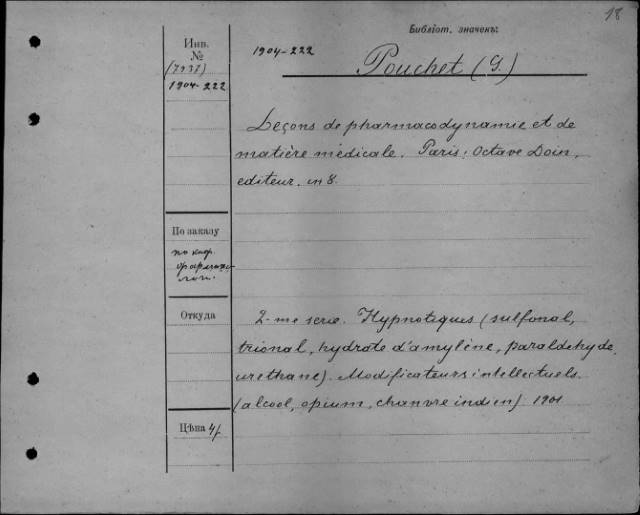 18
Библіот. значекъ:
Инв.
№
(7237)
1904-222
1904-222
Pouchet (G.)
Leçons de pharmacodynamie et de
matière médicale. Paris: Octave Doin,
editeur. in 8.
По заказу
по каф.
фармако-
лог.
Откуда
2-me serie. Hypnotiques (sulfonal,
trional, hydrate d'amylène, paraldehyde,
urethane). Modificateurs intellectuels.
(alcool, opium, chanvre indien) 1901
Цѣна 4/